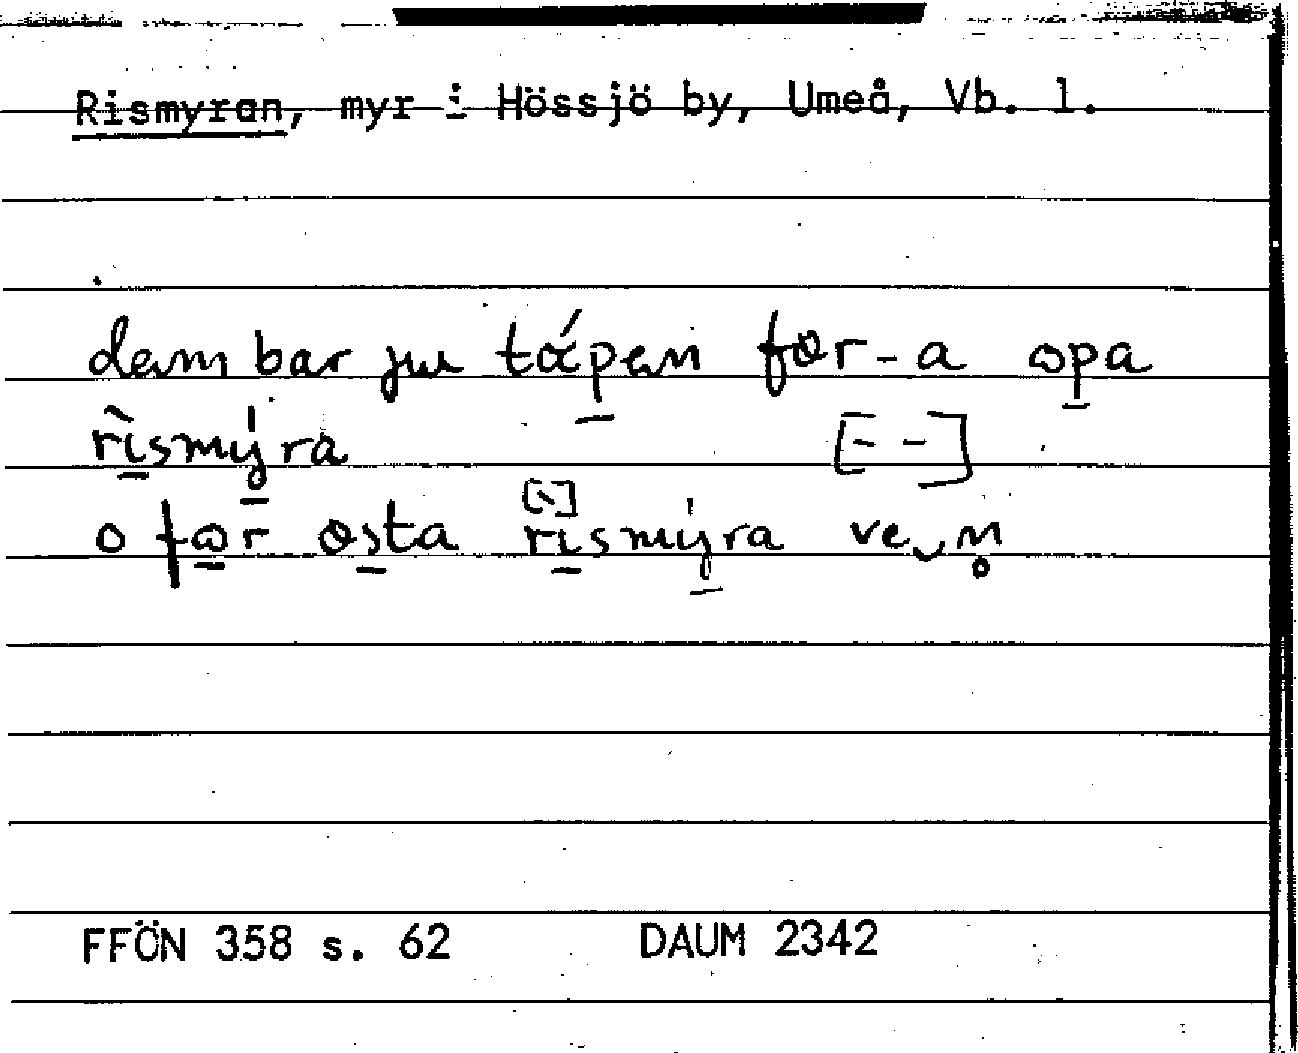 Rismyran, myr i Hössjö by, Umeå, Vb. l.
dem bar ju tápen før-a ɷpa
rìsmýra [- -]
o fɷr østa rismýra ve‿n̥
FFÖN 358 s. 62 DAUM 2342